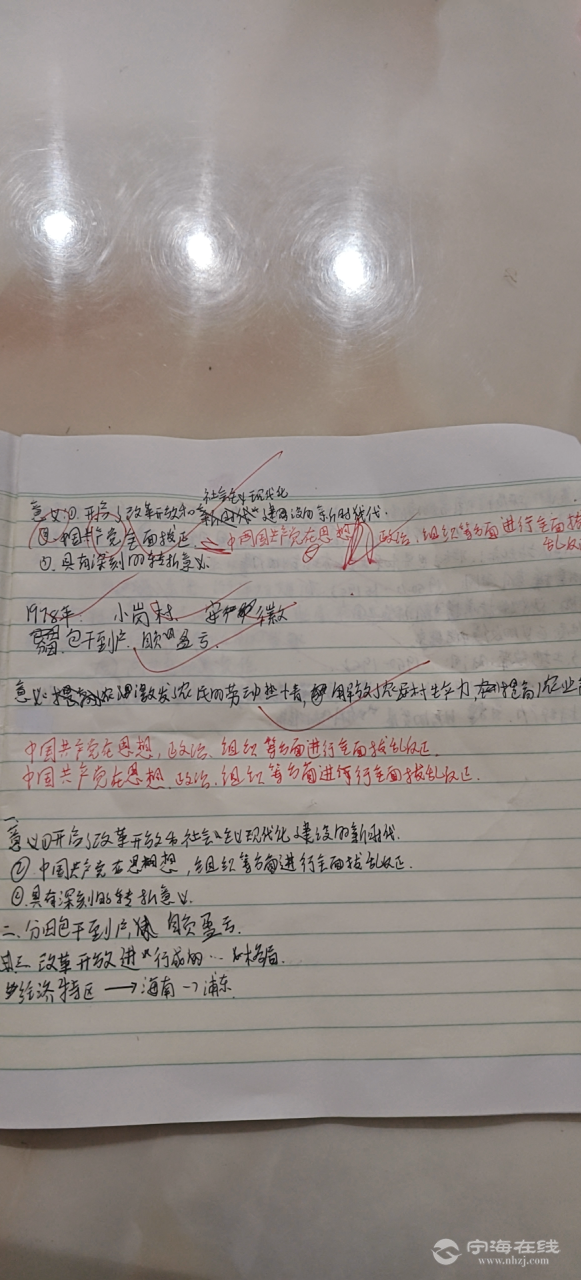 社会主义现代化
意义①开启了改革开放和建设的新时代.
②中国共产党全面拨正 中国共产党在思想 政治、组织等方面进行全面拨乱反正
③.具有深刻的转折意义.
1978年 小岗村 安徽
包干到户、自负盈亏.
意义:激发农民的劳动热情,解放了农村生产力,提高了农业
中国共产党在思想,政治、组织等方面进行全面拨乱反正.
中国共产党在思想、政治、组织等方面进行全面拨乱反正.
一.
意义①开启了改革开放和社会主义现代化建设的新时代.
②中国共产党在思想,组织等方面进行全面拨乱反正.
③具有深刻的转折意义.
二.分田包干到户,自负盈亏.
三.改革开放进行成的…格局.
经济特区→海南→浦东.
宁海在线
www.nhzj.com